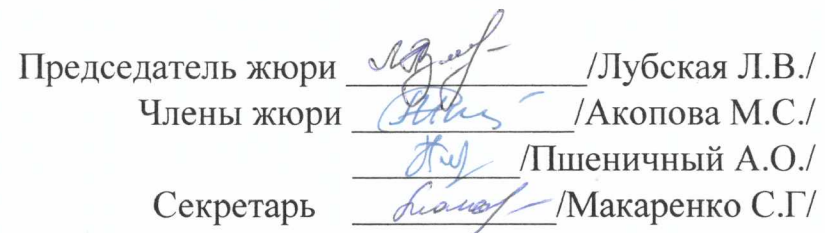 Председатель жюри /Лубская Л.В./
Члены жюри /Акопова М.С./
/Пшеничный А.О./
Секретарь /Макаренко С.Г/